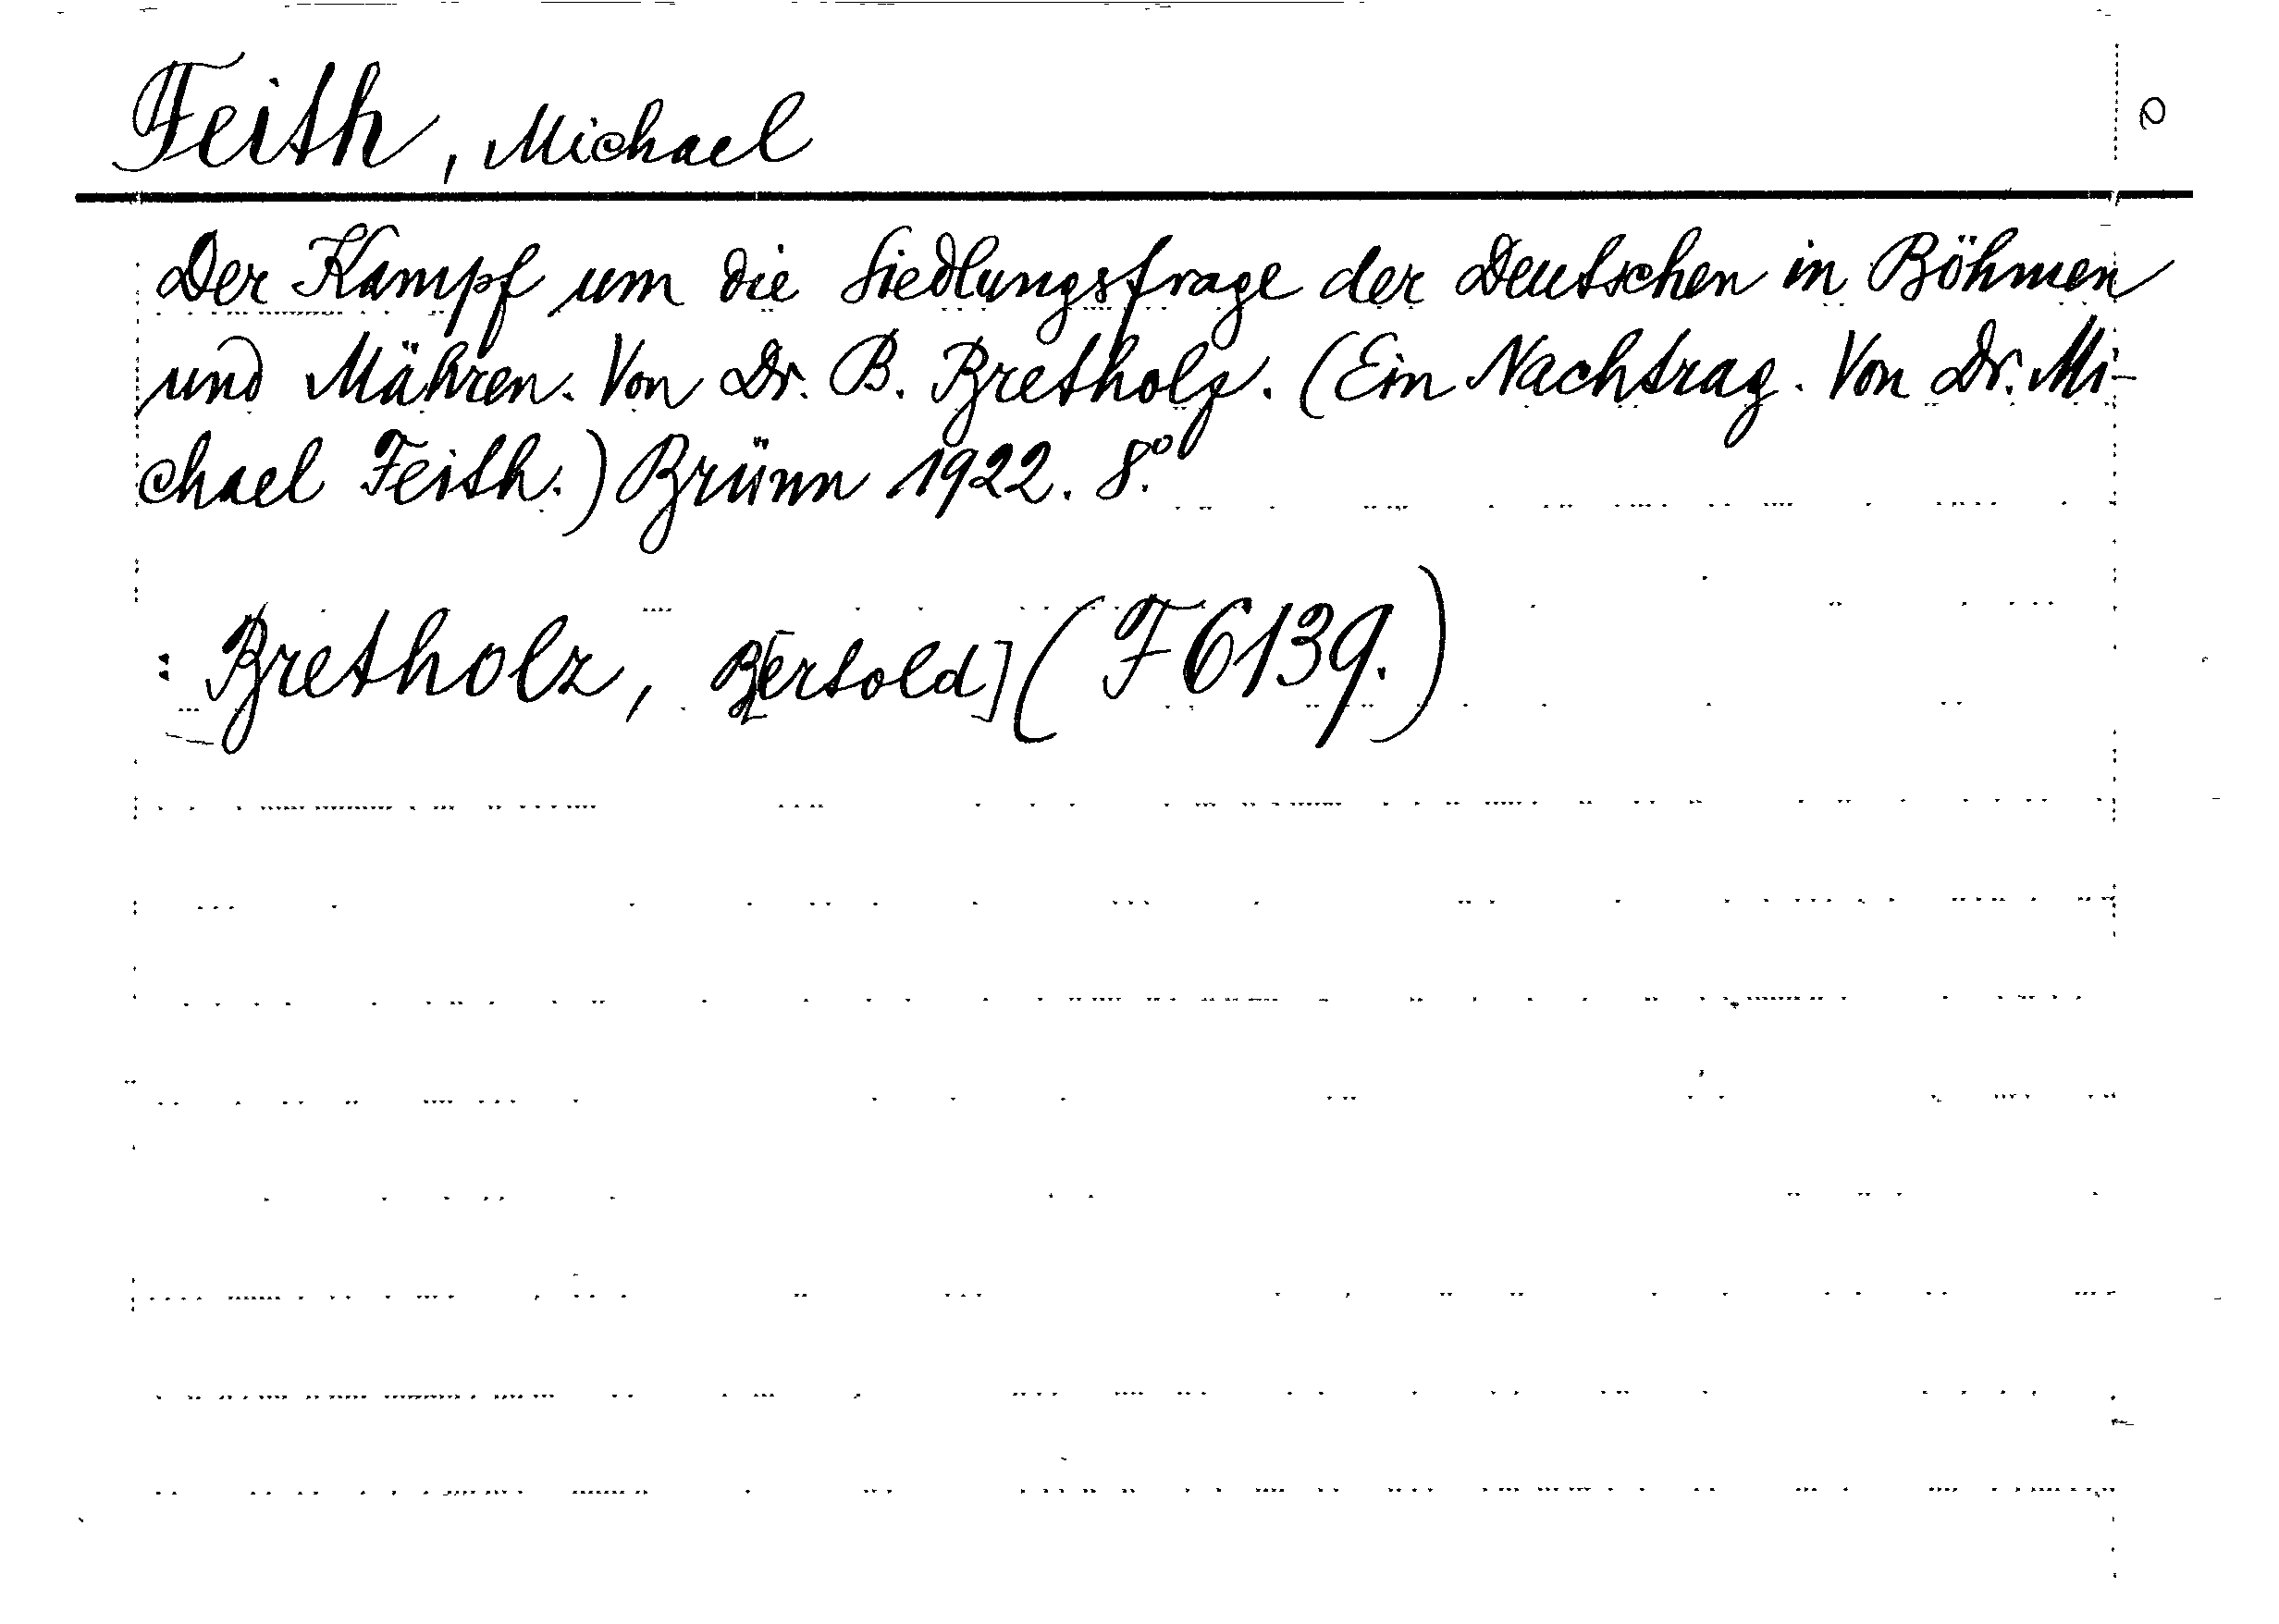 Feith, Michael
Der Kampf um die Siedlungsfrage der Deutschen in Böhmen
und Mähren. Von Dr. B. Bretholz. (Ein Nachtrag. Von Dr. Mi-
chael Feith.) Brünn 1922. 8.°
: Bretholz, B[ertold] (F 6139.)